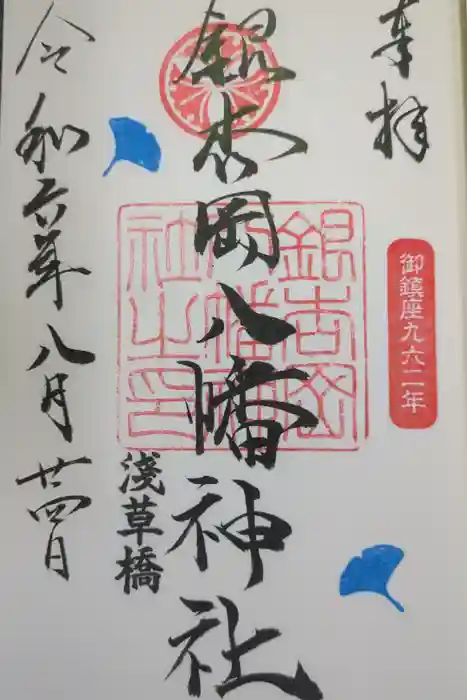 奉拝
御鎮座九六二年
銀杏岡八幡神社
銀杏岡
八幡神
社之印
淺草橋
令和六年八月廿四日